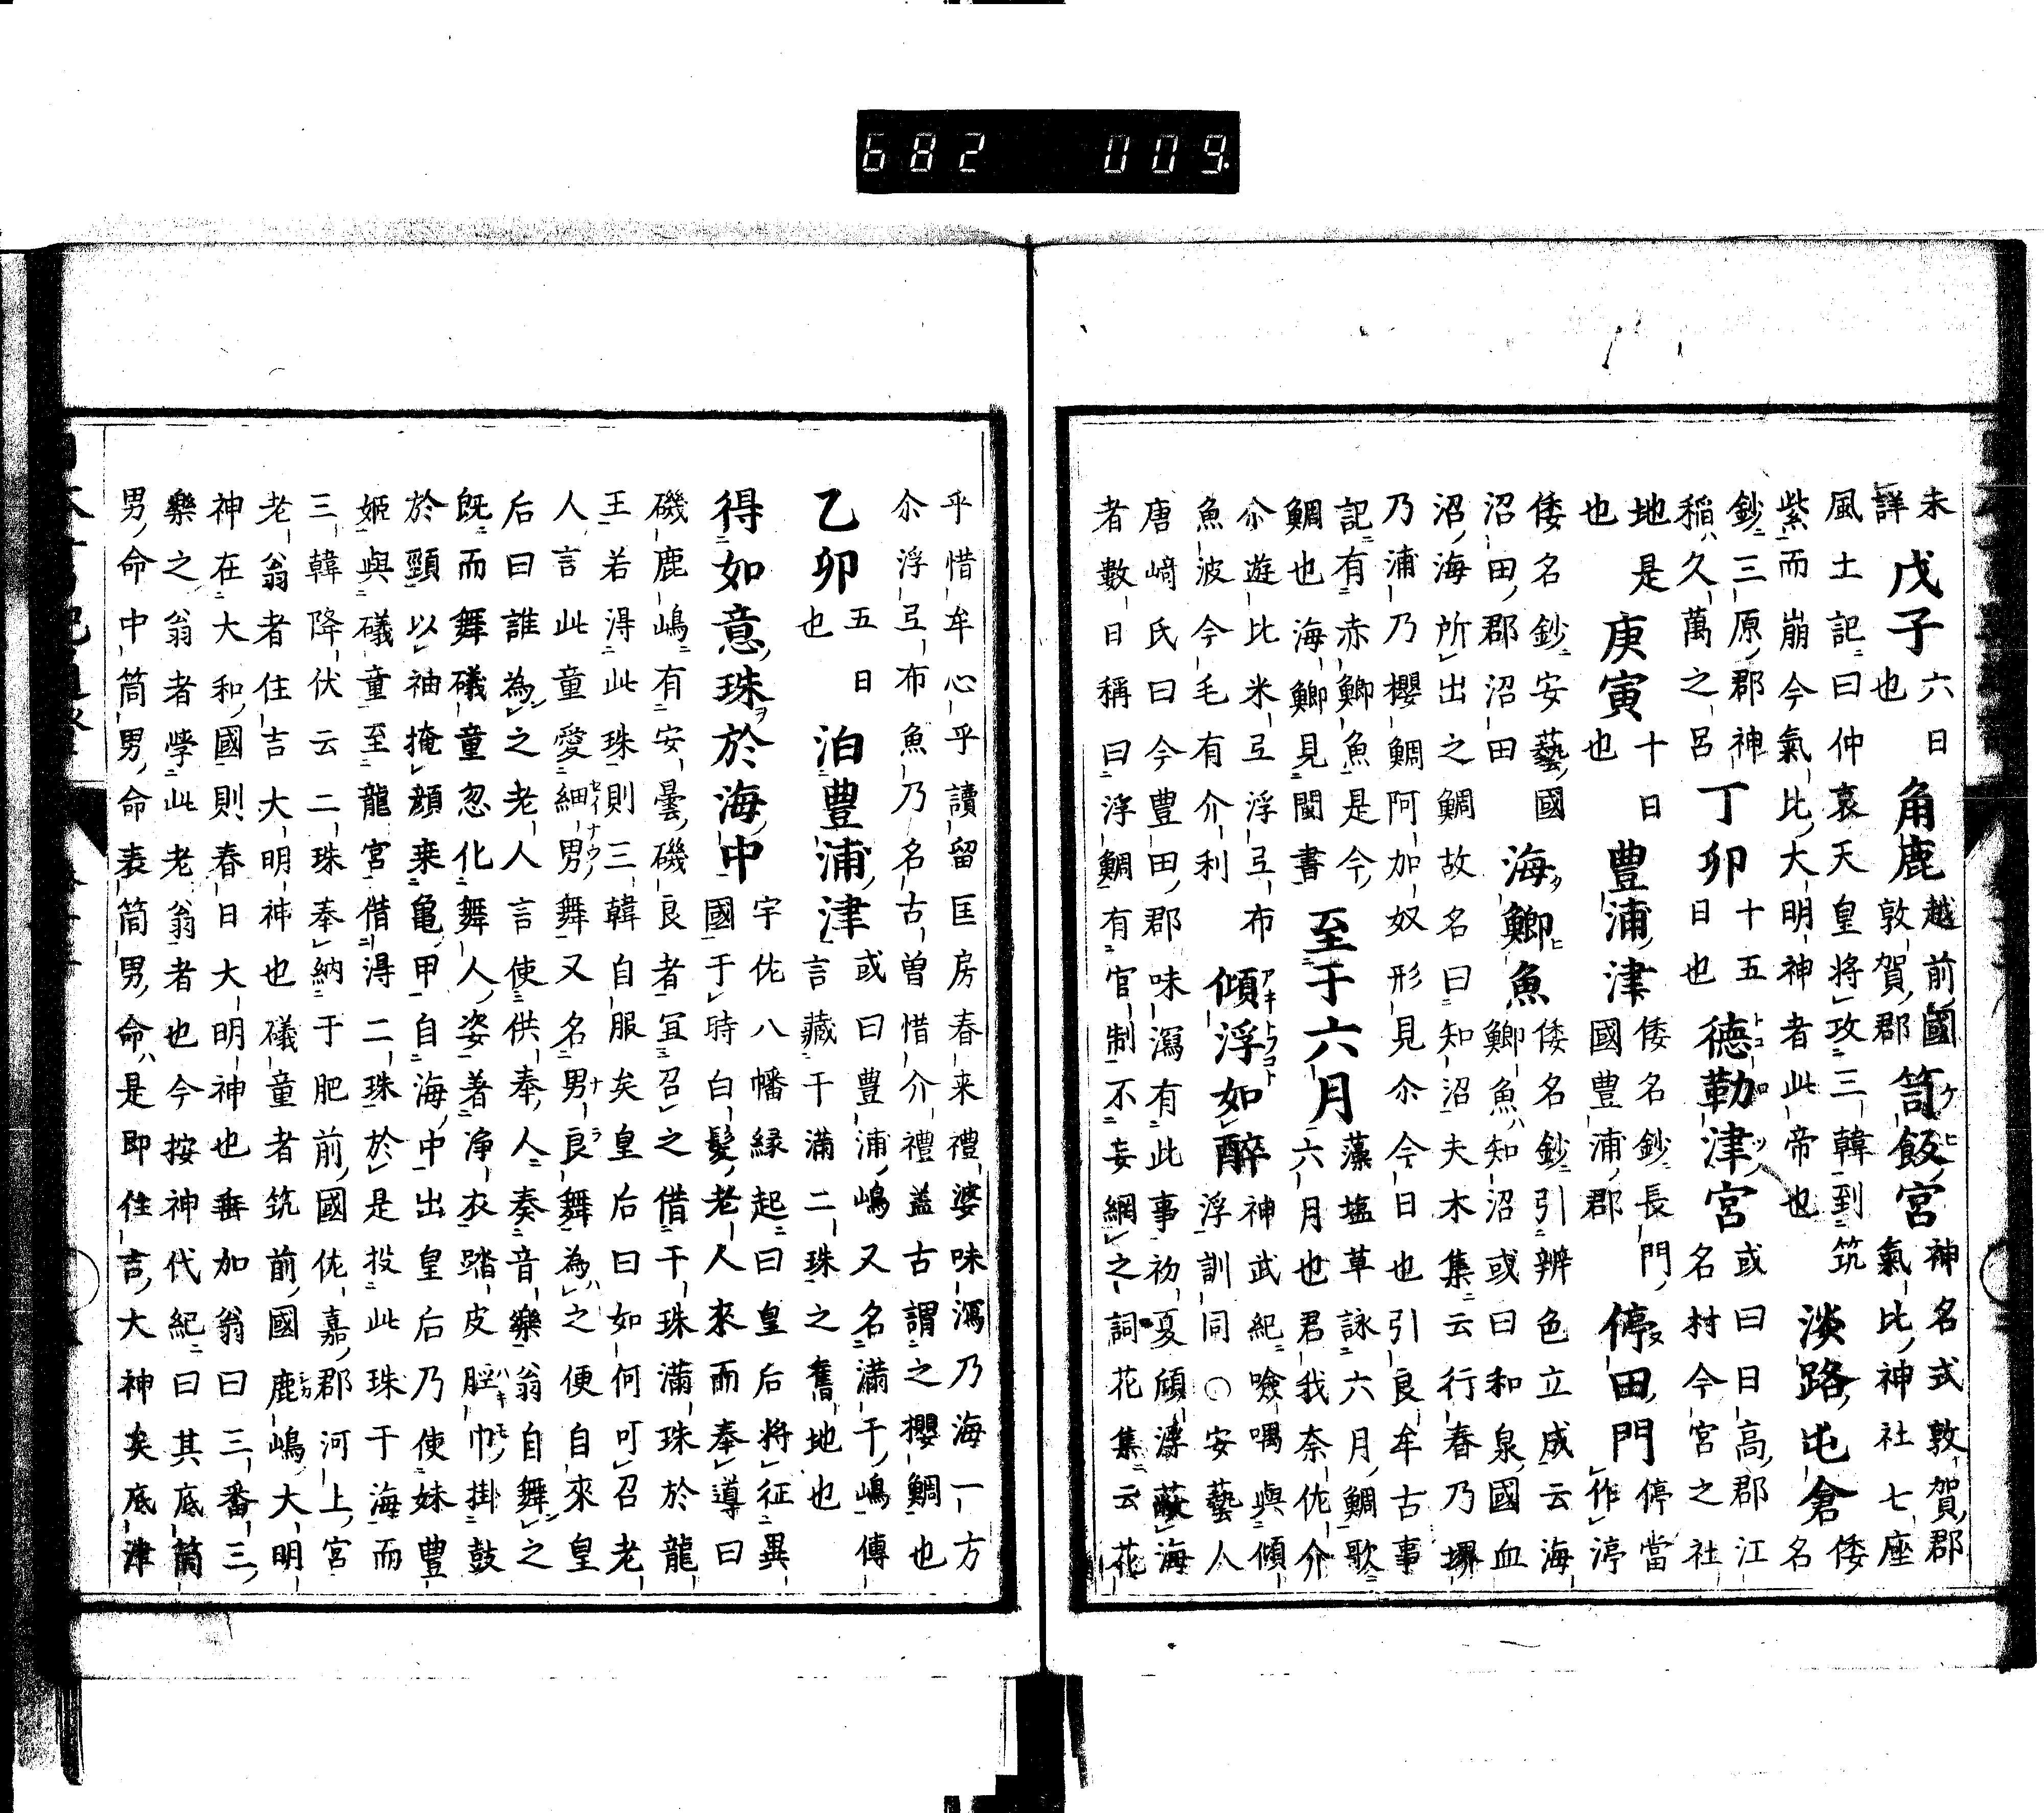 未詳 戊子 六日也 角鹿 越前國敦賀郡 笥飯宮 神名式敦賀郡氣比神社七座
風土記曰仲哀天皇将攻三韓到筑
紫而崩今氣比大明神者此帝也 淡路屯倉 倭名
鈔三原郡神稲久萬之呂 丁卯 十五日也 德勒津宮 或曰日高郡江名村今宮之社
地是也 庚寅 十日也 豊浦津 倭名鈔長門國豊浦郡 停田門 停當作渟
倭名鈔安藝國沼田郡沼田 海鯽魚 倭名鈔引辨色立成云海鯽魚知沼或曰和泉國血
沼海所出之鯛故名曰知沼夫木集云行春乃堺
乃浦乃櫻鯛阿加奴形見尒今日也引良牟古事
記有赤鯽魚是今鯛也海鯽見閩書 至于六月 藻塩草詠六月鯛歌六月也君我奈佐介
尒遊比米互浮互布魚波今毛有介利 傾浮如醉 神武紀嶮㖠與傾浮訓同〇安藝人
唐﨑氏曰今豊田郡味瀉有此事初夏傾浮蔽海
者數日稱曰浮鯛有官制不妄網之詞花集云花
乎惜牟心乎讀留匡房春来禮婆味瀉乃海一方
尒浮互布魚乃名古曽惜介禮盖古謂之櫻鯛也
乙卯 五日也 泊豊浦津 或曰豊浦嶋又名満干嶋傳言藏干満二珠之舊地也
得如意珠於海中 宇佐八幡縁起曰皇后将征異國于時白髪老人來而奉導曰
磯鹿嶋有安曇磯良者冝召之借干珠満珠於龍
王若得此珠則三韓自服矣皇后曰如何可召老
人言此童愛細男舞又名男良舞為之便自來皇
后曰誰為之老人言使供奉人奏音樂翁自舞之
既而舞礒童忽化舞人姿著浄衣踏皮脛巾掛鼓
於頸以袖掩顔乗亀甲自海中出皇后乃使妹豊
姬與礒童至龍宮借得二珠於是投此珠于海而
三韓降伏云二珠奉納于肥前國佐嘉郡河上宮
老翁者住吉大明神也礒童者筑前國鹿嶋大明
神在大和國則春日大明神也垂加翁曰三番三
樂之翁者學此老翁者也今按神代紀曰其底筒
男命中筒男命表筒男命是即住吉大神矣底津
682 009